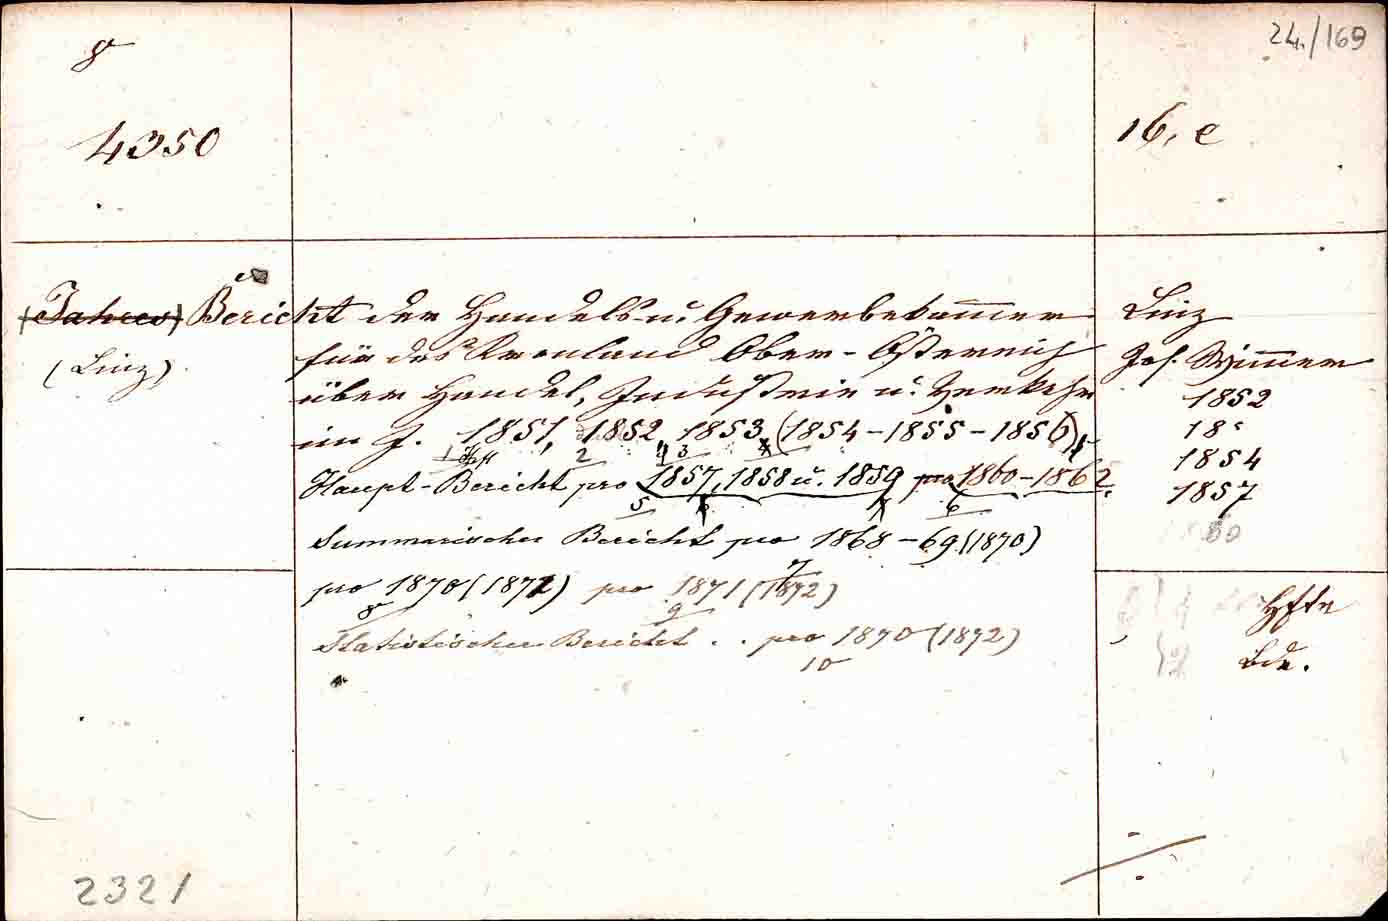 8
24./169
4350
16, e
(Jahres) Bericht der Handels- u. Gewerbekam̅er
für das Kronland Ober-Österreich
über Handel, Industrie u. Verkehr
im J. 1851, 1852, 1853, (1854-1855-1856),
1 Hft 2 3 4
Haupt-Bericht pro 1857, 1858 u. 1859 pro 1860-1862.
5 6
Summarischer Bericht pro 1868-69 (1870)
7
pro 1870 (1871) pro 1871 (1872)
8 9
Statistischer Bericht . . pro 1870 (1872)
10
(Linz)
Linz
Jos. Wim̅er
1852
18
1854
1857
60
Hfte
Bde.
2321